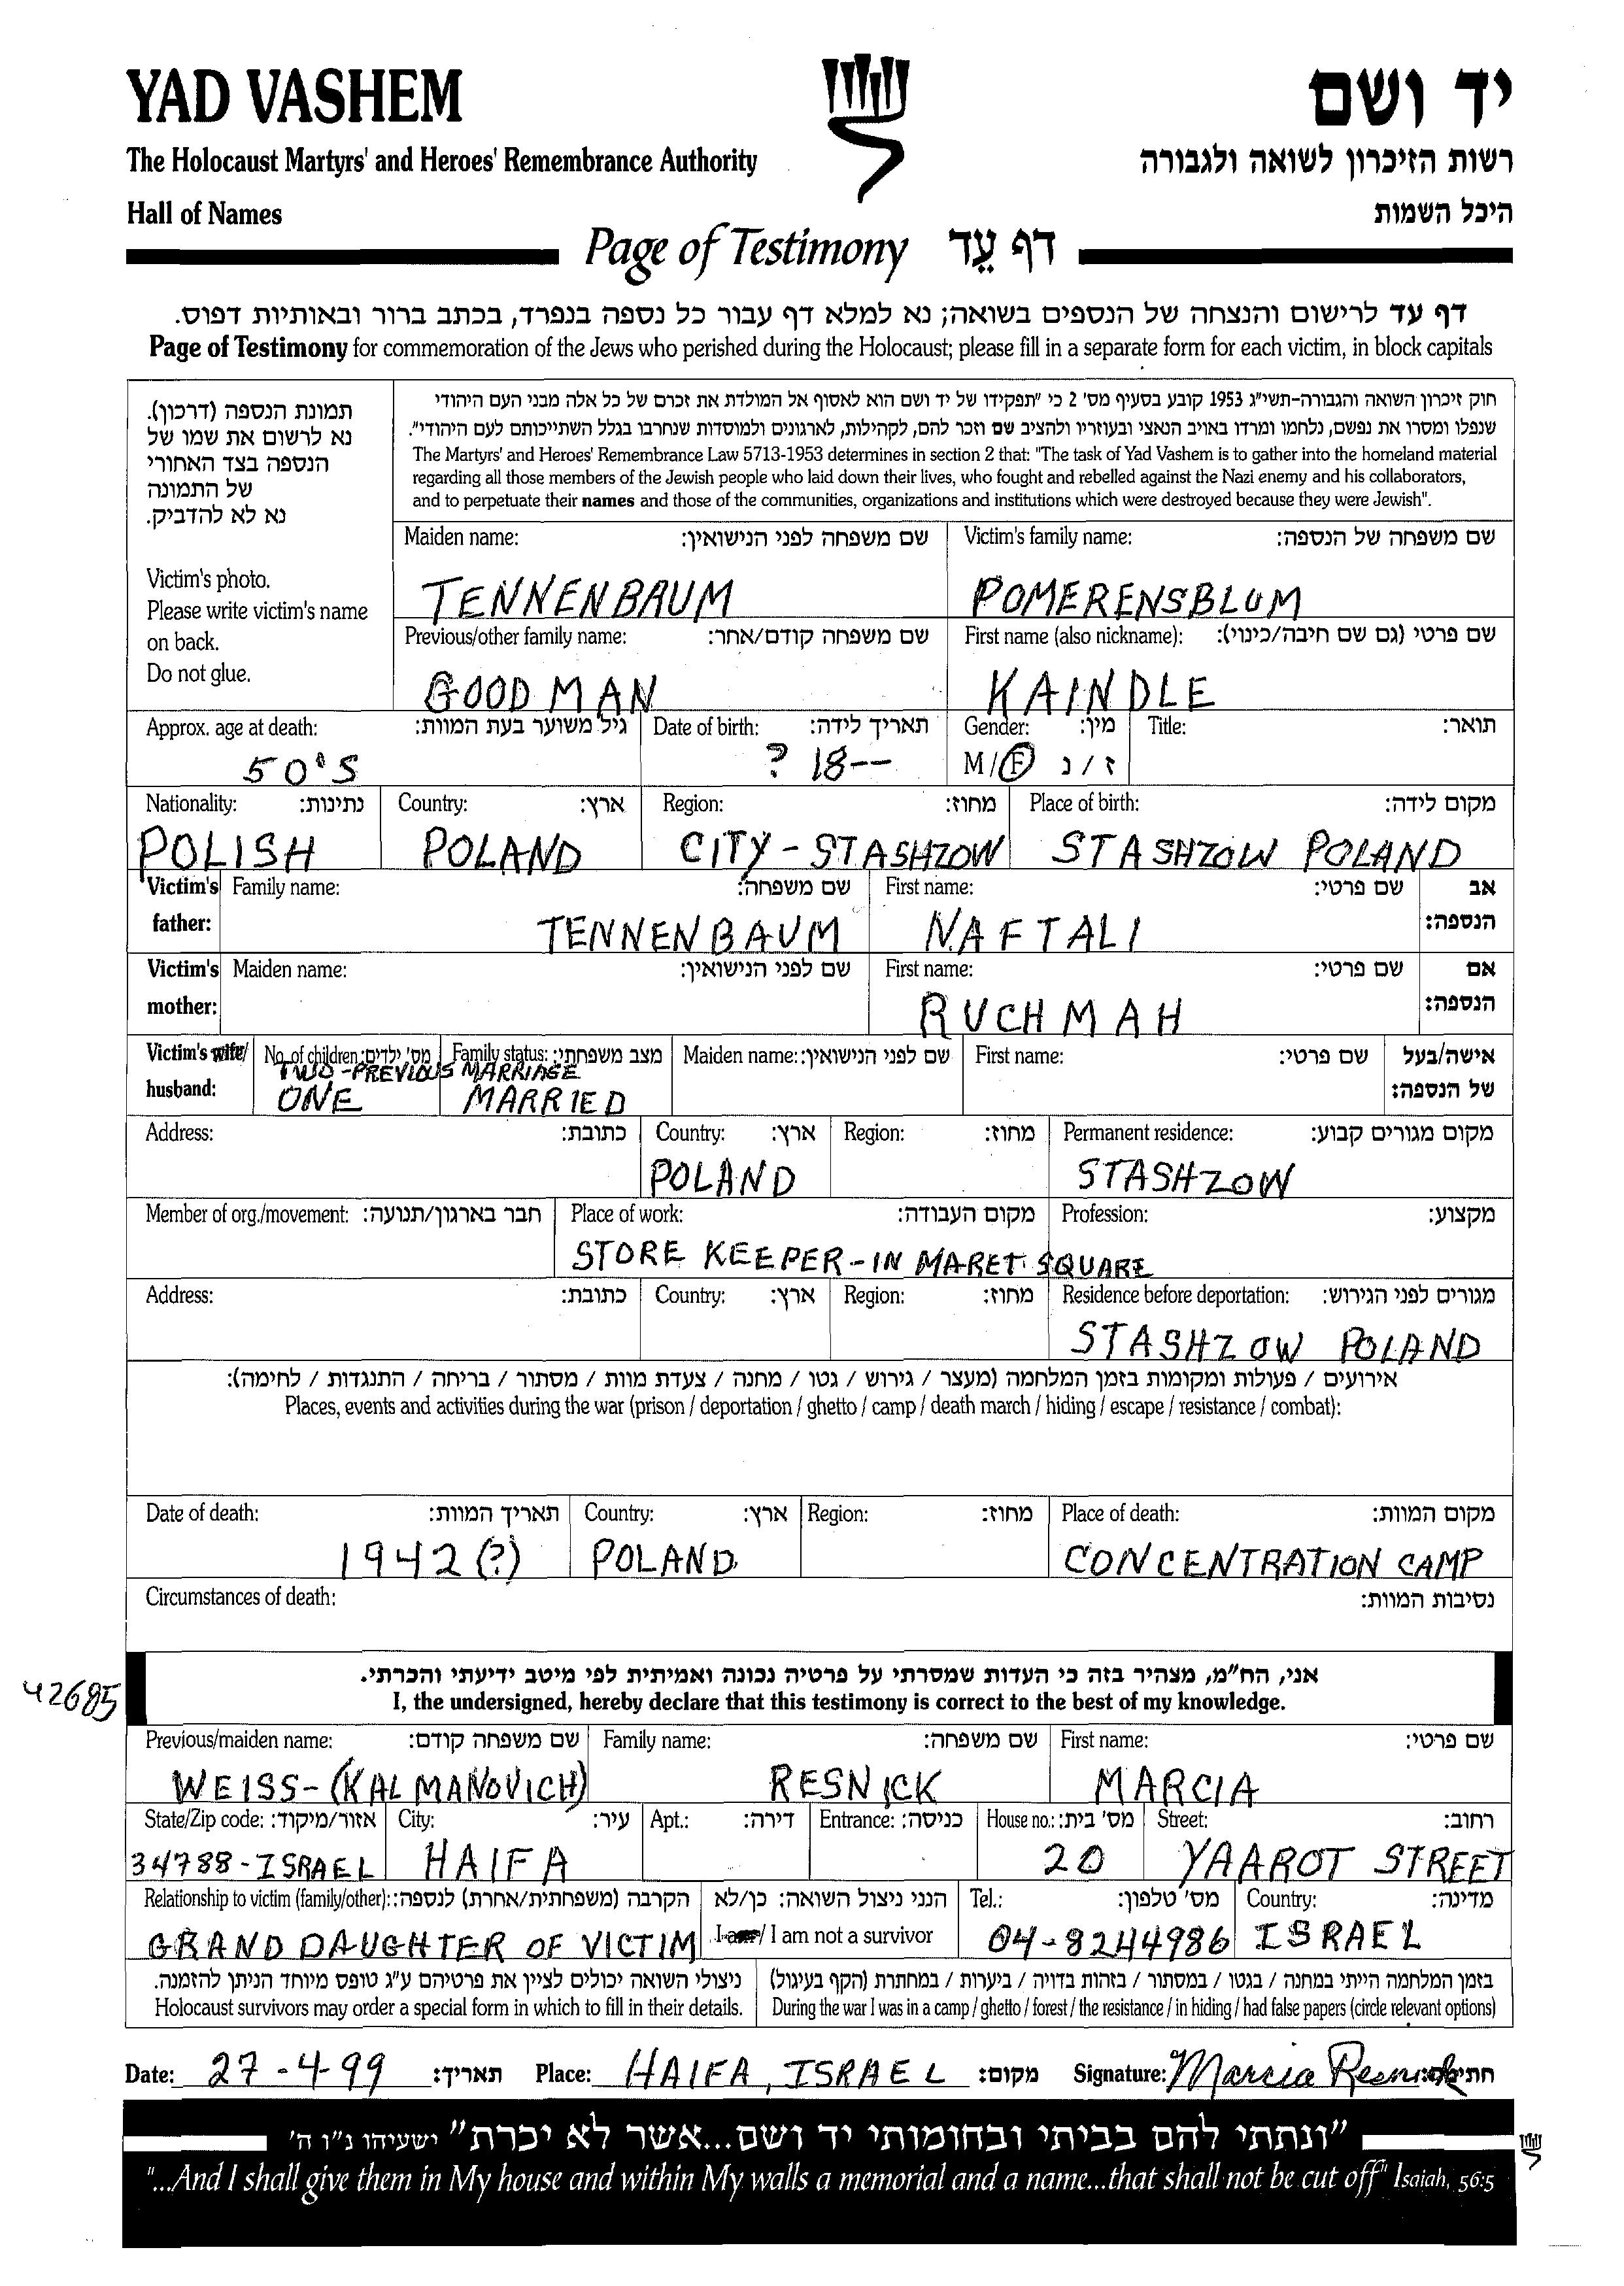 YAD VASHEM
יד ושם
The Holocaust Martyrs' and Heroes' Remembrance Authority
רשות הזיכרון לשואה ולגבורה
Hall of Names
היכל השמות
Page of Testimony דף עֵד
דף עד לרישום והנצחה של הנספים בשואה; נא למלא דף עבור כל נספה בנפרד, בכתב ברור ובאותיות דפוס.
Page of Testimony for commemoration of the Jews who perished during the Holocaust; please fill in a separate form for each victim, in block capitals
תמונת הנספה (דרכון).
נא לרשום את שמו של
הנספה בצד האחורי
של התמונה
נא לא להדביק.
Victim's photo.
Please write victim's name
on back.
Do not glue.
חוק זיכרון השואה והגבורה-תשי"ג 1953 קובע בסעיף מס' 2 כי "תפקידו של יד ושם הוא לאסוף אל המולדת את זכרם של כל אלה מבני העם היהודי
שנפלו ומסרו את נפשם, נלחמו ומרדו באויב הנאצי ובעוזריו ולהציב שם וזכר להם, לקהילות, לארגונים ולמוסדות שנחרבו בגלל השתייכותם לעם היהודי".
The Martyrs' and Heroes' Remembrance Law 5713-1953 determines in section 2 that: "The task of Yad Vashem is to gather into the homeland material
regarding all those members of the Jewish people who laid down their lives, who fought and rebelled against the Nazi enemy and his collaborators,
and to perpetuate their names and those of the communities, organizations and institutions which were destroyed because they were Jewish".
Maiden name: שם משפחה לפני הנישואין: Victim's family name: שם משפחה של הנספה:
TENNENBAUM POMERENSBLUM
Previous/other family name: שם משפחה קודם/אחר: First name (also nickname): שם פרטי (גם שם חיבה/כינוי):
GOODMAN KAINDLE
Approx. age at death: גיל משוער בעת המוות: Date of birth: תאריך לידה: Gender: מין: Title: תואר:
50'S ? 18-- M/F ז/נ
Nationality: נתינות: Country: ארץ: Region: מחוז: Place of birth: מקום לידה:
POLISH POLAND CITY - STASHZOW STASHZOW POLAND
Victim's Family name: שם משפחה: First name: שם פרטי: אב
father: TENNENBAUM NAFTALI הנספה:
Victim's Maiden name: שם לפני הנישואין: First name: שם פרטי: אם
mother: RUCHMAH הנספה:
Victim's wife/ No. of children: מס' ילדים: Family status: מצב משפחתי: Maiden name: שם לפני הנישואין: First name: שם פרטי: אישה/בעל
TWO-PREVIOUS MARRIAGE
husband: ONE MARRIED של הנספה:
Address: כתובת: Country: ארץ: Region: מחוז: Permanent residence: מקום מגורים קבוע:
POLAND STASHZOW
Member of org./movement: חבר בארגון/תנועה: Place of work: מקום העבודה: Profession: מקצוע:
STORE KEEPER - IN MARET SQUARE
Address: כתובת: Country: ארץ: Region: מחוז: Residence before deportation: מגורים לפני הגירוש:
STASHZOW POLAND
אירועים / פעולות ומקומות בזמן המלחמה (מעצר / גירוש / גטו / מחנה / צעדת מוות / מסתור / בריחה / התנגדות / לחימה):
Places, events and activities during the war (prison / deportation / ghetto / camp / death march / hiding / escape / resistance / combat):
Date of death: תאריך המוות: Country: ארץ: Region: מחוז: Place of death: מקום המוות:
1942(?) POLAND CONCENTRATION CAMP
Circumstances of death: נסיבות המוות:
אני, הח"מ, מצהיר בזה כי העדות שמסרתי על פרטיה נכונה ואמיתית לפי מיטב ידיעתי והכרתי.
42685
I, the undersigned, hereby declare that this testimony is correct to the best of my knowledge.
Previous/maiden name: שם משפחה קודם: Family name: שם משפחה: First name: שם פרטי:
WEISS-(KALMANOVICH) RESNICK MARCIA
State/Zip code: אזור/מיקוד: City: עיר: Apt.: דירה: Entrance: כניסה: House no.: מס' בית: Street: רחוב:
34788-ISRAEL HAIFA 20 YAAROT STREET
Relationship to victim (family/other): הקרבה (משפחתית/אחרת) לנספה: הנני ניצול השואה: כן/לא Tel.: מס' טלפון: Country: מדינה:
GRANDDAUGHTER OF VICTIM I am/ I am not a survivor 04-8244986 ISRAEL
ניצולי השואה יכולים לציין את פרטיהם ע"ג טופס מיוחד הניתן להזמנה. בזמן המלחמה הייתי במחנה / בגטו / במסתור / בזהות בדויה / ביערות / במחתרת (הקף בעיגול)
Holocaust survivors may order a special form in which to fill in their details. During the war I was in a camp / ghetto / forest / the resistance / in hiding / had false papers (circle relevant options)
Date: 27-4-99 תאריך: Place: HAIFA, ISRAEL מקום: Signature: Marcia Resnick חתימה:
"ונתתי להם בביתי ובחומותי יד ושם...אשר לא יכרת" ישעיהו נ"ו ה'
"...And I shall give them in My house and within My walls a memorial and a name...that shall not be cut off" Isaiah, 56:5